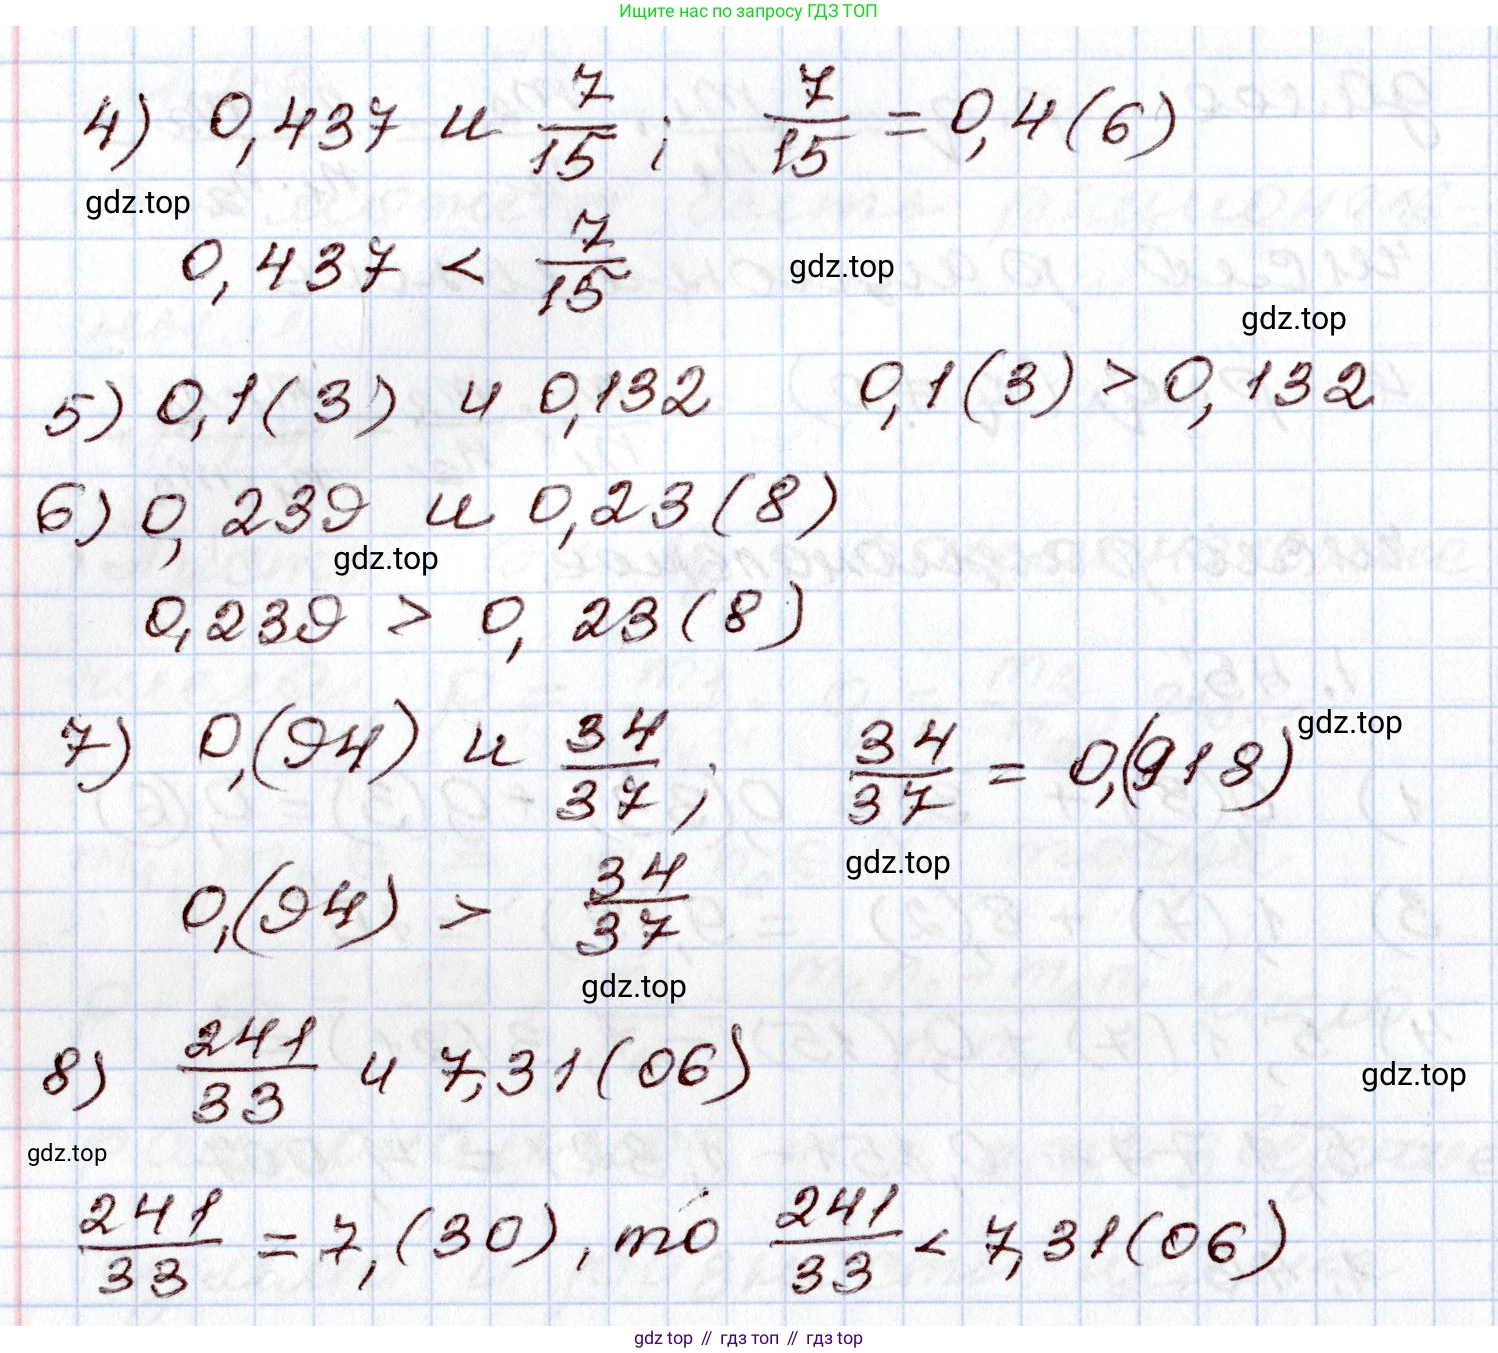 Ищите нас по запросу ГДЗ ТОП
4) 0,437 и 7/15 ; 7/15 = 0,4(6)
gdz.top
0,437 < 7/15
gdz.top
gdz.top
5) 0,1(3) и 0,132 0,1(3) > 0,132
6) 0,239 и 0,23(8)
gdz.top
0,239 > 0,23(8)
7) 0,(94) и 34/37 ; 34/37 = 0,(918)
gdz.top
gdz.top
0,(94) > 34/37
gdz.top
8) 241/33 и 7,31(06)
gdz.top
gdz.top
241/33 = 7,(30), то 241/33 < 7,31(06)
gdz top // гдз топ // гдз top